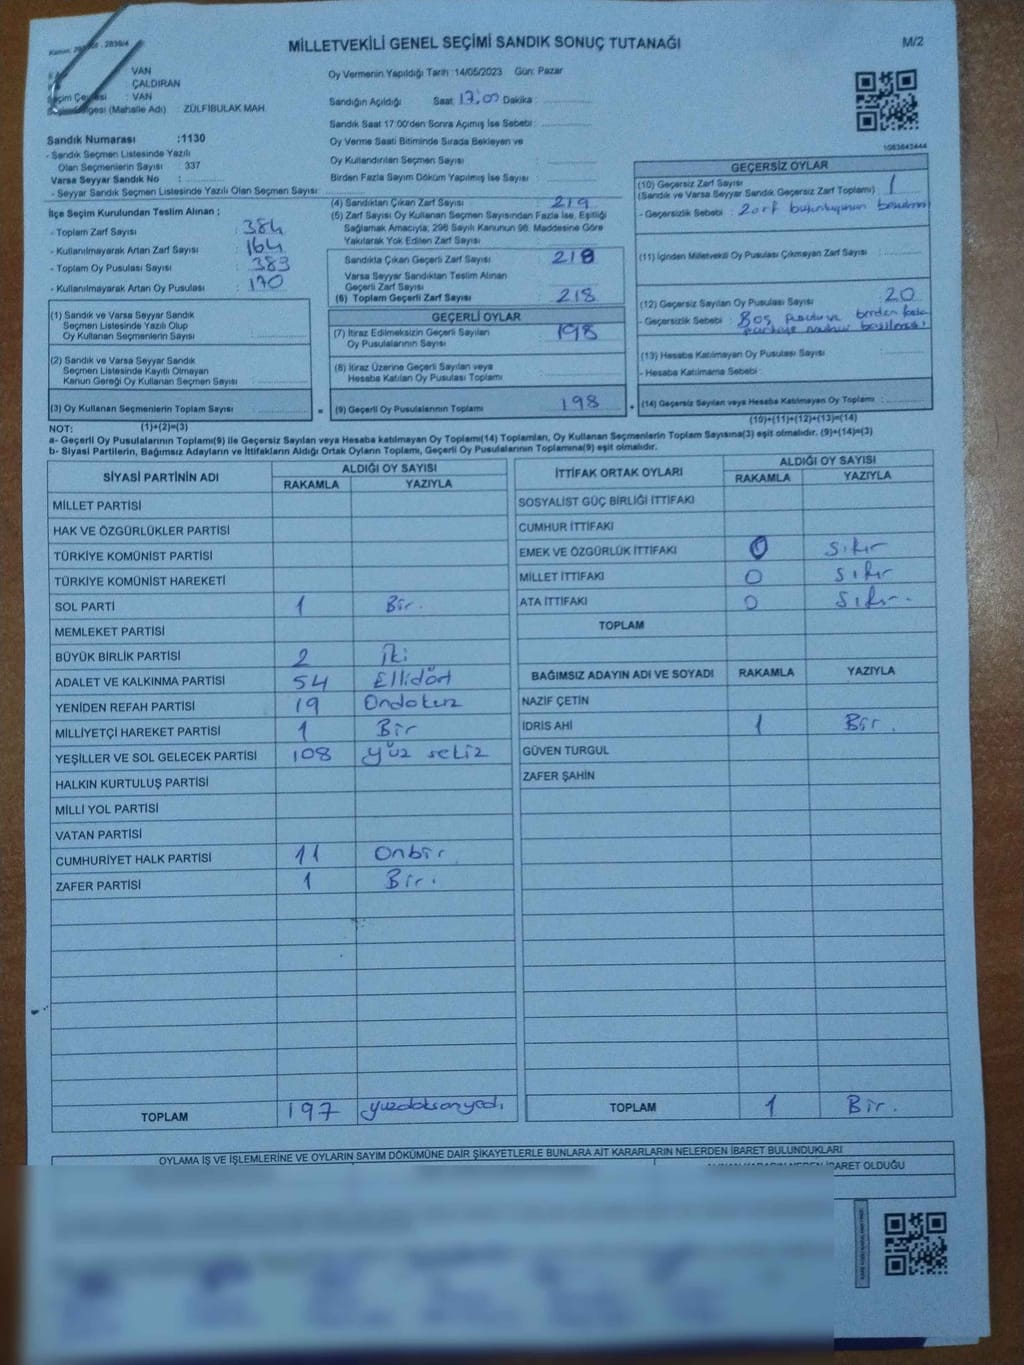 MİLLETVEKİLİ GENEL SEÇİMİ SANDIK SONUÇ TUTANAĞI
M/2
VAN
ÇALDIRAN
Seçim Çevresi : VAN
(Mahalle Adı) : ZÜLFİBULAK MAH
Sandık Numarası :1130
- Sandık Seçmen Listesinde Yazılı
Olan Seçmenlerin Sayısı : 337
Varsa Seyyar Sandık No :
- Seyyar Sandık Seçmen Listesinde Yazılı Olan Seçmen Sayısı:
Oy Vermenin Yapıldığı Tarih :14/05/2023 Gün: Pazar
Sandığın Açıldığı Saat 17:00 Dakika :
Sandık Saat 17:00'den Sonra Açımış İse Sebebi :
Oy Verme Saati Bitiminde Sırada Bekleyen ve
Oy Kullandırılan Seçmen Sayısı :
Birden Fazla Sayım Döküm Yapılmış İse Sayısı :
1083843444
İlçe Seçim Kurulundan Teslim Alınan :
- Toplam Zarf Sayısı : 384
- Kullanılmayarak Artan Zarf Sayısı : 164
- Toplam Oy Pusulası Sayısı : 383
- Kullanılmayarak Artan Oy Pusulası : 170
(1) Sandık ve Varsa Seyyar Sandık
Seçmen Listesinde Yazılı Olup
Oy Kullanan Seçmen Sayısı :
(2) Sandık ve Varsa Seyyar Sandık
Seçmen Listesinde Kayıtlı Olmayan
Kanun Gereği Oy Kullanan Seçmen Sayısı :
(3) Oy Kullanan Seçmenlerin Toplam Sayısı :
(4) Sandıktan Çıkan Zarf Sayısı : 219
(5) Zarf Sayısı Oy Kullanan Seçmen Sayısından Fazla İse, Eşitliği
Sağlamak Amacıyla, 298 Sayılı Kanunun 98. Maddesine Göre
Yakılarak Yok Edilen Zarf Sayısı :
Sandıkta Çıkan Geçerli Zarf Sayısı : 218
Varsa Seyyar Sandıktan Teslim Alınan
Geçerli Zarf Sayısı :
(6) Toplam Geçerli Zarf Sayısı : 218
GEÇERLİ OYLAR
(7) İtiraz Edilmeksizin Geçerli Sayılan
Oy Pusulalarının Sayısı : 198
(8) İtiraz Üzerine Geçerli Sayılan veya
Hesaba Katılan Oy Pusulası Toplamı :
= (9) Geçerli Oy Pusulalarının Toplamı : 198
GEÇERSİZ OYLAR
(10) Geçersiz Zarf Sayısı
(Sandık ve Varsa Seyyar Sandık Geçersiz Zarf Toplamı) : 1
- Geçersizlik Sebebi : Zarf bütünlüğünün bozulma
(11) İçinden Milletvekili Oy Pusulası Çıkmayan Zarf Sayısı :
(12) Geçersiz Sayılan Oy Pusulası Sayısı : 20
- Geçersizlik Sebebi : Boş pusula ve birden fazla
partiye mühür basılması
(13) Hesaba Katılmayan Oy Pusulası Sayısı :
- Hesaba Katılmama Sebebi :
+ (14) Geçersiz Sayılan veya Hesaba Katılmayan Oy Toplamı :
NOT: (1)+(2)=(3)
(10)+(11)+(12)+(13)=(14)
a- Geçerli Oy Pusulalarının Toplamı(9) ile Geçersiz Sayılan veya Hesaba katılmayan Oy Toplamı(14) Toplamları, Oy Kullanan Seçmenlerin Toplam Sayısına(3) eşit olmalıdır. (9)+(14)=(3)
b- Siyasi Partilerin, Bağımsız Adayların ve İttifakların Aldığı Ortak Oyların Toplamı, Geçerli Oy Pusulalarının Toplamına(9) eşit olmalıdır.
SİYASİ PARTİNİN ADI ALDIĞI OY SAYISI
RAKAMLA YAZIYLA
MİLLET PARTİSİ
HAK VE ÖZGÜRLÜKLER PARTİSİ
TÜRKİYE KOMÜNİST PARTİSİ
TÜRKİYE KOMÜNİST HAREKETİ
SOL PARTİ 1 Bir.
MEMLEKET PARTİSİ
BÜYÜK BİRLİK PARTİSİ 2 İki
ADALET VE KALKINMA PARTİSİ 54 Ellidört
YENİDEN REFAH PARTİSİ 19 Ondokuz
MİLLİYETÇİ HAREKET PARTİSİ 1 Bir
YEŞİLLER VE SOL GELECEK PARTİSİ 108 Yüz sekiz
HALKIN KURTULUŞ PARTİSİ
MİLLİ YOL PARTİSİ
VATAN PARTİSİ
CUMHURİYET HALK PARTİSİ 11 Onbir
ZAFER PARTİSİ 1 Bir.
TOPLAM 197 yüzdoksanyedi
İTTİFAK ORTAK OYLARI ALDIĞI OY SAYISI
RAKAMLA YAZIYLA
SOSYALİST GÜÇ BİRLİĞİ İTTİFAKI
CUMHUR İTTİFAKI
EMEK VE ÖZGÜRLÜK İTTİFAKI 0 Sıfır
MİLLET İTTİFAKI 0 Sıfır
ATA İTTİFAKI 0 Sıfır.
TOPLAM
BAĞIMSIZ ADAYIN ADI VE SOYADI RAKAMLA YAZIYLA
NAZİF ÇETİN
İDRİS AHİ 1 Bir.
GÜVEN TURGUL
ZAFER ŞAHİN
TOPLAM 1 Bir.
OYLAMA İŞ VE İŞLEMLERİNE VE OYLARIN SAYIM DÖKÜMÜNE DAİR ŞİKAYETLERLE BUNLARA AİT KARARLARIN NELERDEN İBARET BULUNDUKLARI
İBARET OLDUĞU